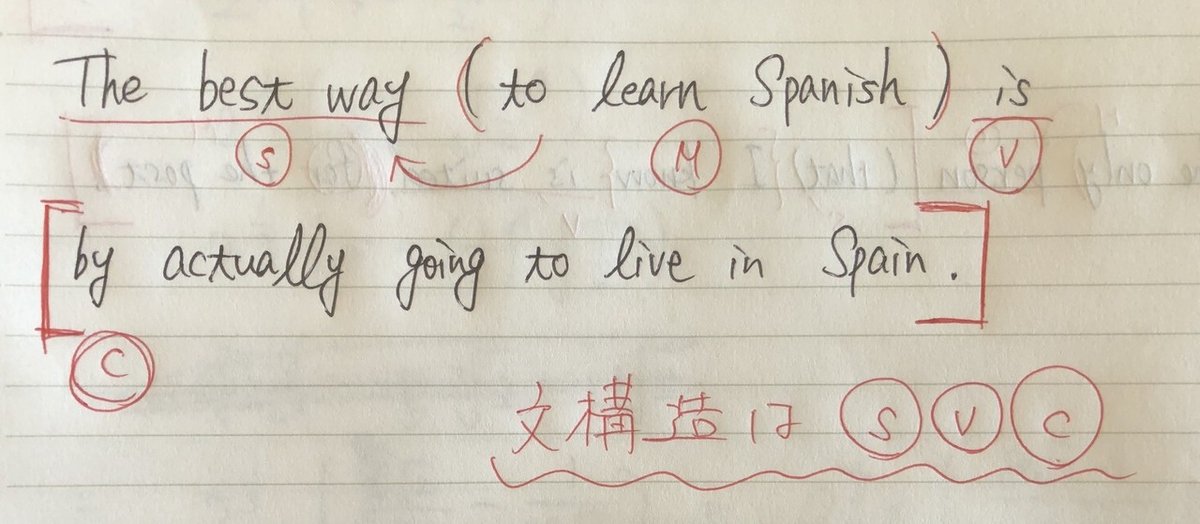 The best way (to learn Spanish) is
S M V
[by actually going to live in Spain.]
C
文構造は S V C